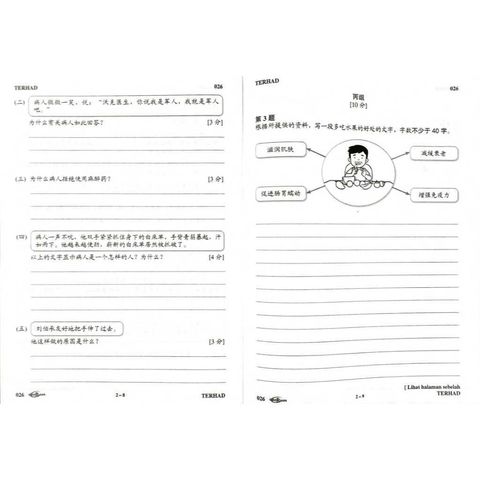 TERHAD
026
(二)
病人微微一笑,说:“沃克医生,你说我是军人,我就是军人
吧。”
为什么有关病人如此回答?
[3 分]
(三) 为什么病人拒绝使用麻醉药?
[3 分]
(四)
病人一声不吭,他双手紧紧抓住身下的白床单,手背青筋暴起,汗
如雨下。他越来越使劲,崭新的白床单居然被抓破了。
以上的文字显示病人是一个怎样的人?为什么?
[4 分]
(五)
刘伯承友好地把手伸了过去。
他这样做的原因是什么?
[3 分]
026
2 – 8
TERHAD
TERHAD
026
丙组
[10 分]
第 3 题
根据所提供的资料,写一段多吃水果的好处的文字,字数不少于 40 字。
滋润肌肤
减缓衰老
促进肠胃蠕动
增强免疫力
[ Lihat halaman sebelah
TERHAD
026
2 – 9